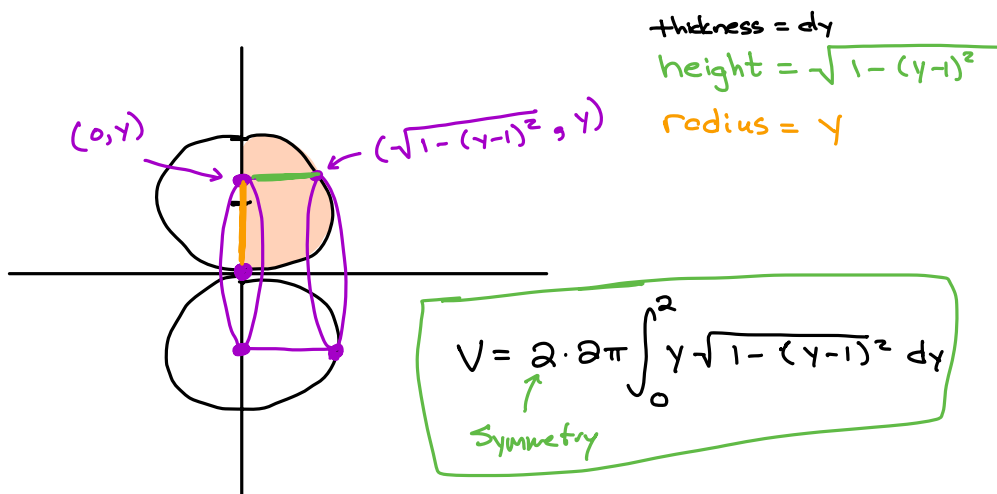 thickness = dy
height = √(1 - (y-1)²)
radius = y
(0, y)
(√(1 - (y-1)²), y)
V = 2 · 2π ∫₀² y √(1 - (y-1)²) dy
Symmetry